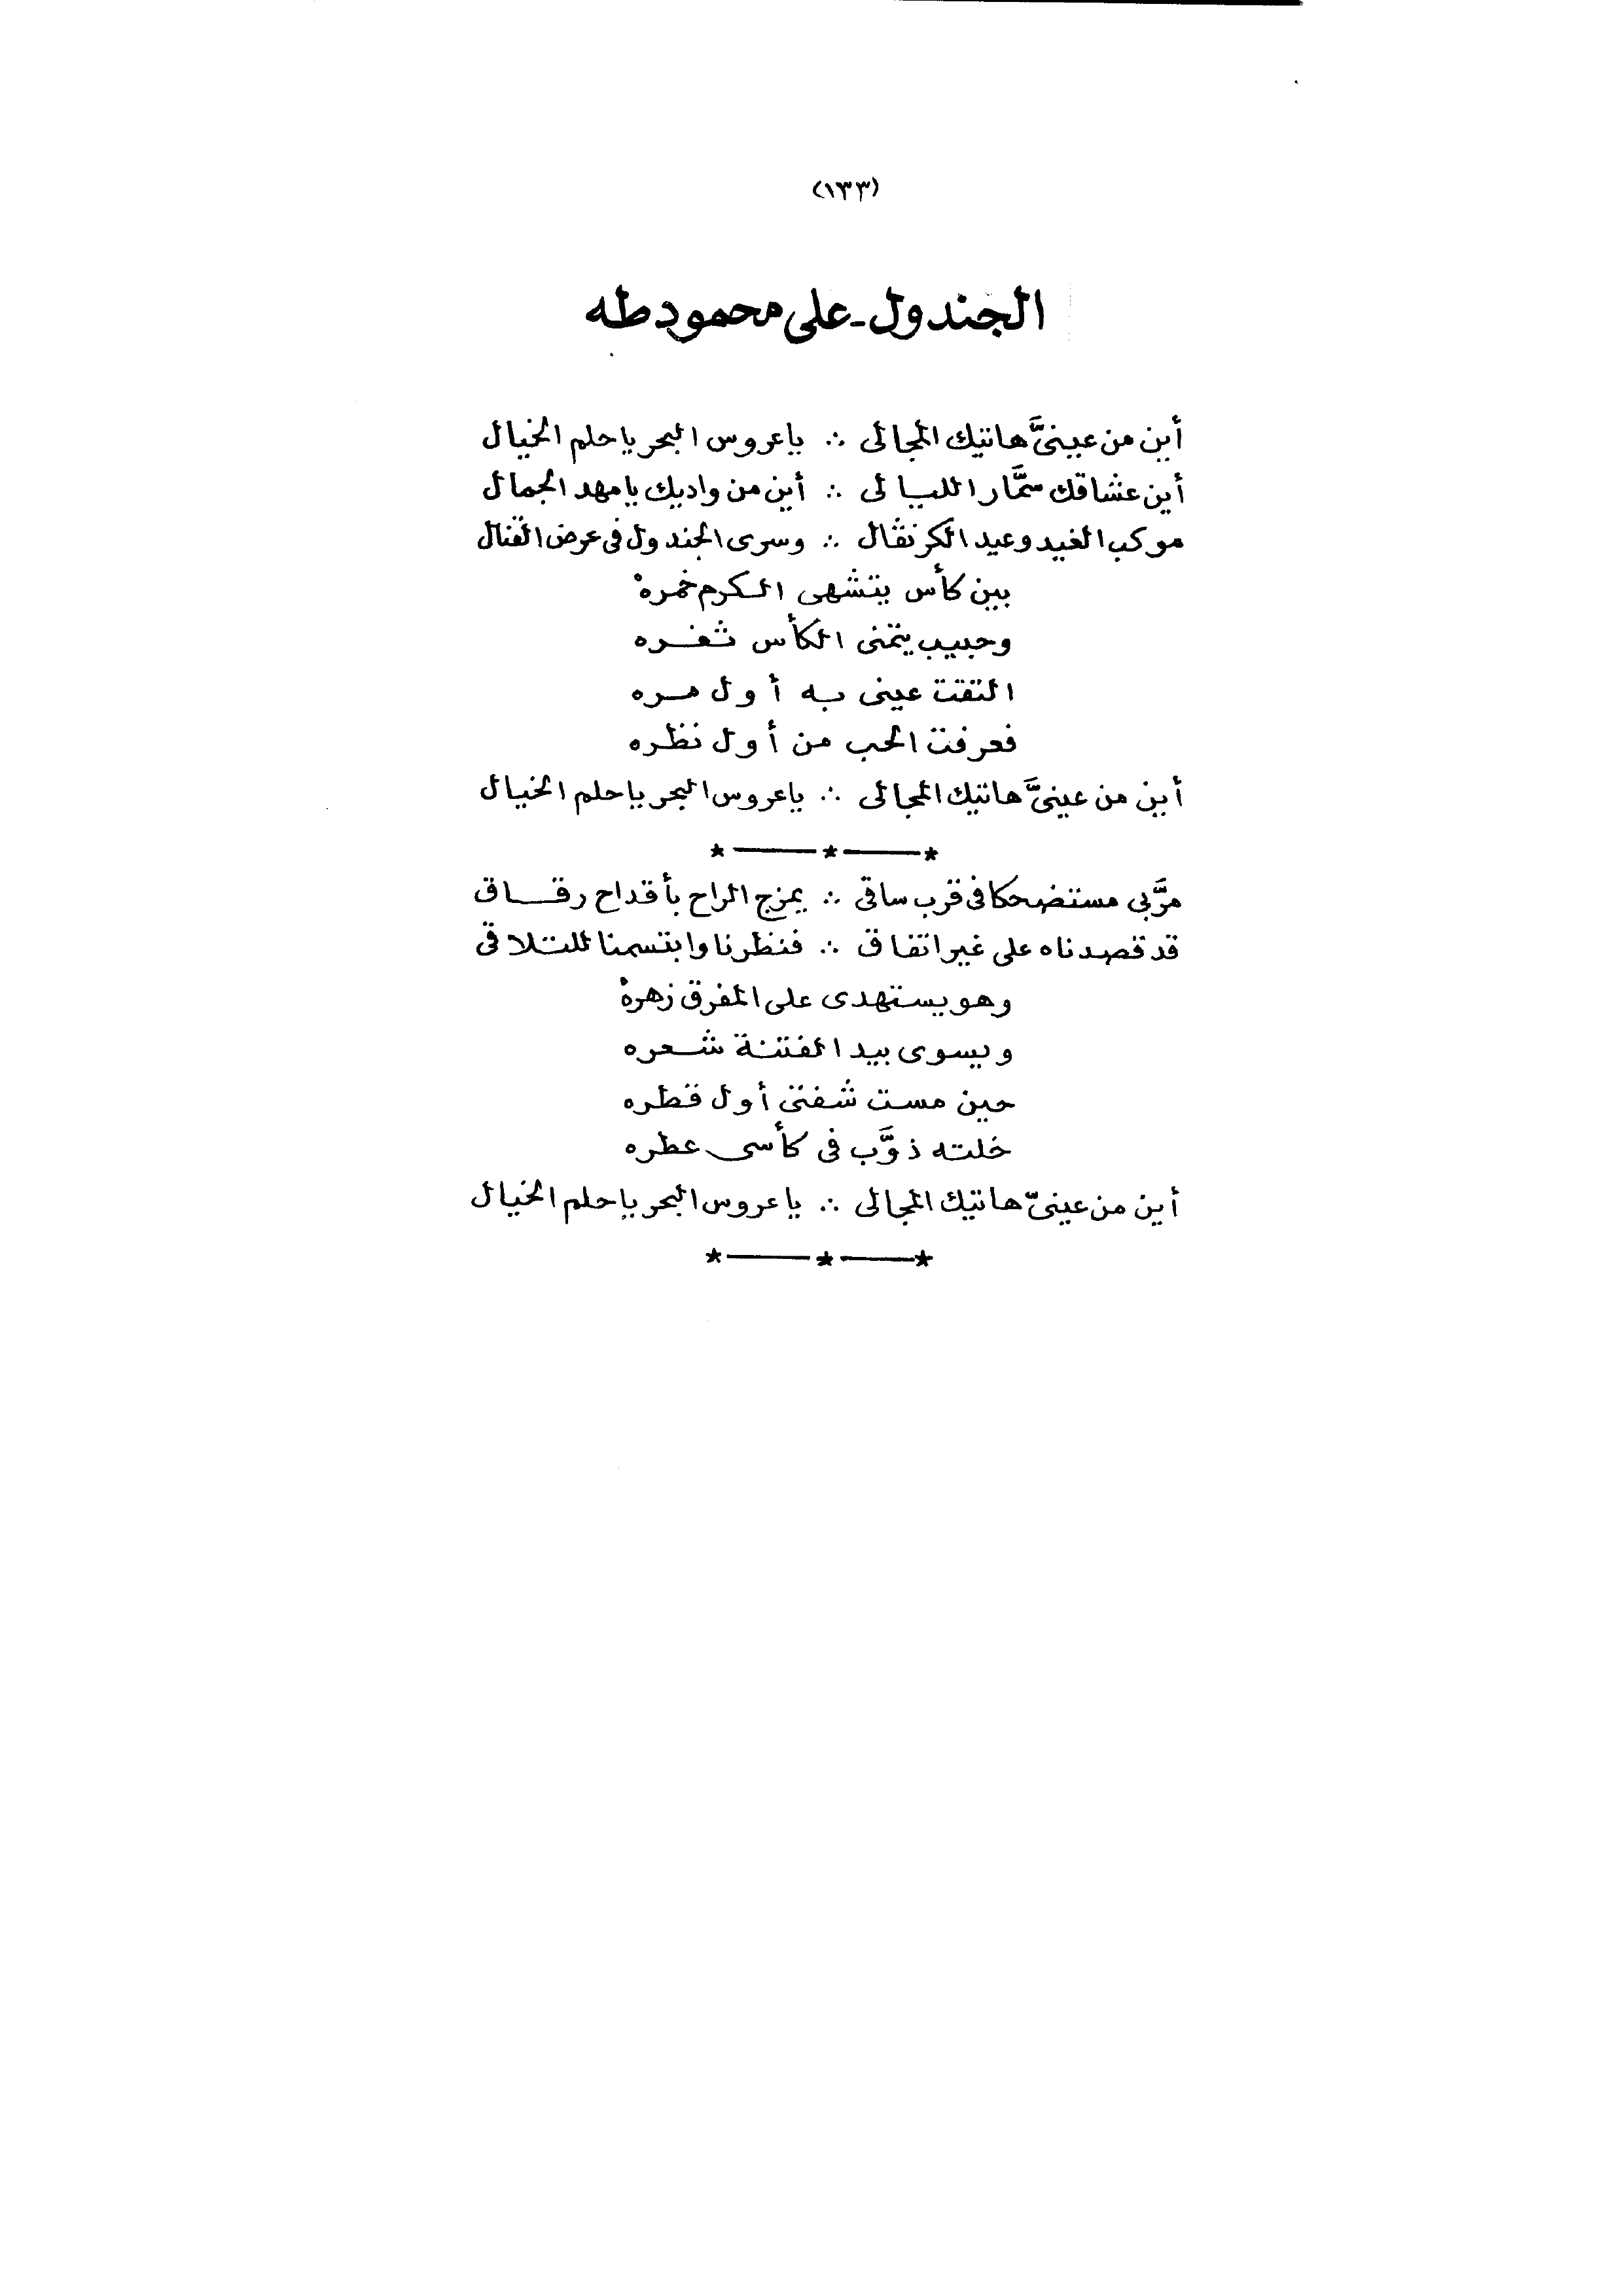 (١٣٣)
الجندول - على محمود طه
أين من عينىَّ هاتيك المجالى ∴ ياعروس البحر ياحلم الخيال
أين عشاقك سمَّار الليالى ∴ أين من واديك يامهد الجمال
موكب الغيد وعيد الكرنڤال ∴ وسرى الجندول فى عرض القنال
بين كأس يتشهى الكرم خمرهْ
وحبيب يتمنى الكأس ثغره
التقت عينى به أول مره
فعرفت الحب من أول نظره
أين من عينىَّ هاتيك المجالى ∴ ياعروس البحر ياحلم الخيال
مرَّبى مستضحكا فى قرب ساقى ∴ يمزج الراح بأقداح رقاق
قد قصدناه على غير اتفاق ∴ فنظرنا وابتسمنا للتلاقى
وهو يستهدى على المفرق زهرهْ
ويسوى بيد الفتنة شعره
حين مست شفتى أول قطره
خلته ذوَّب فى كأسى عطره
أين من عينىّ هاتيك المجالى ∴ ياعروس البحر ياحلم الخيال